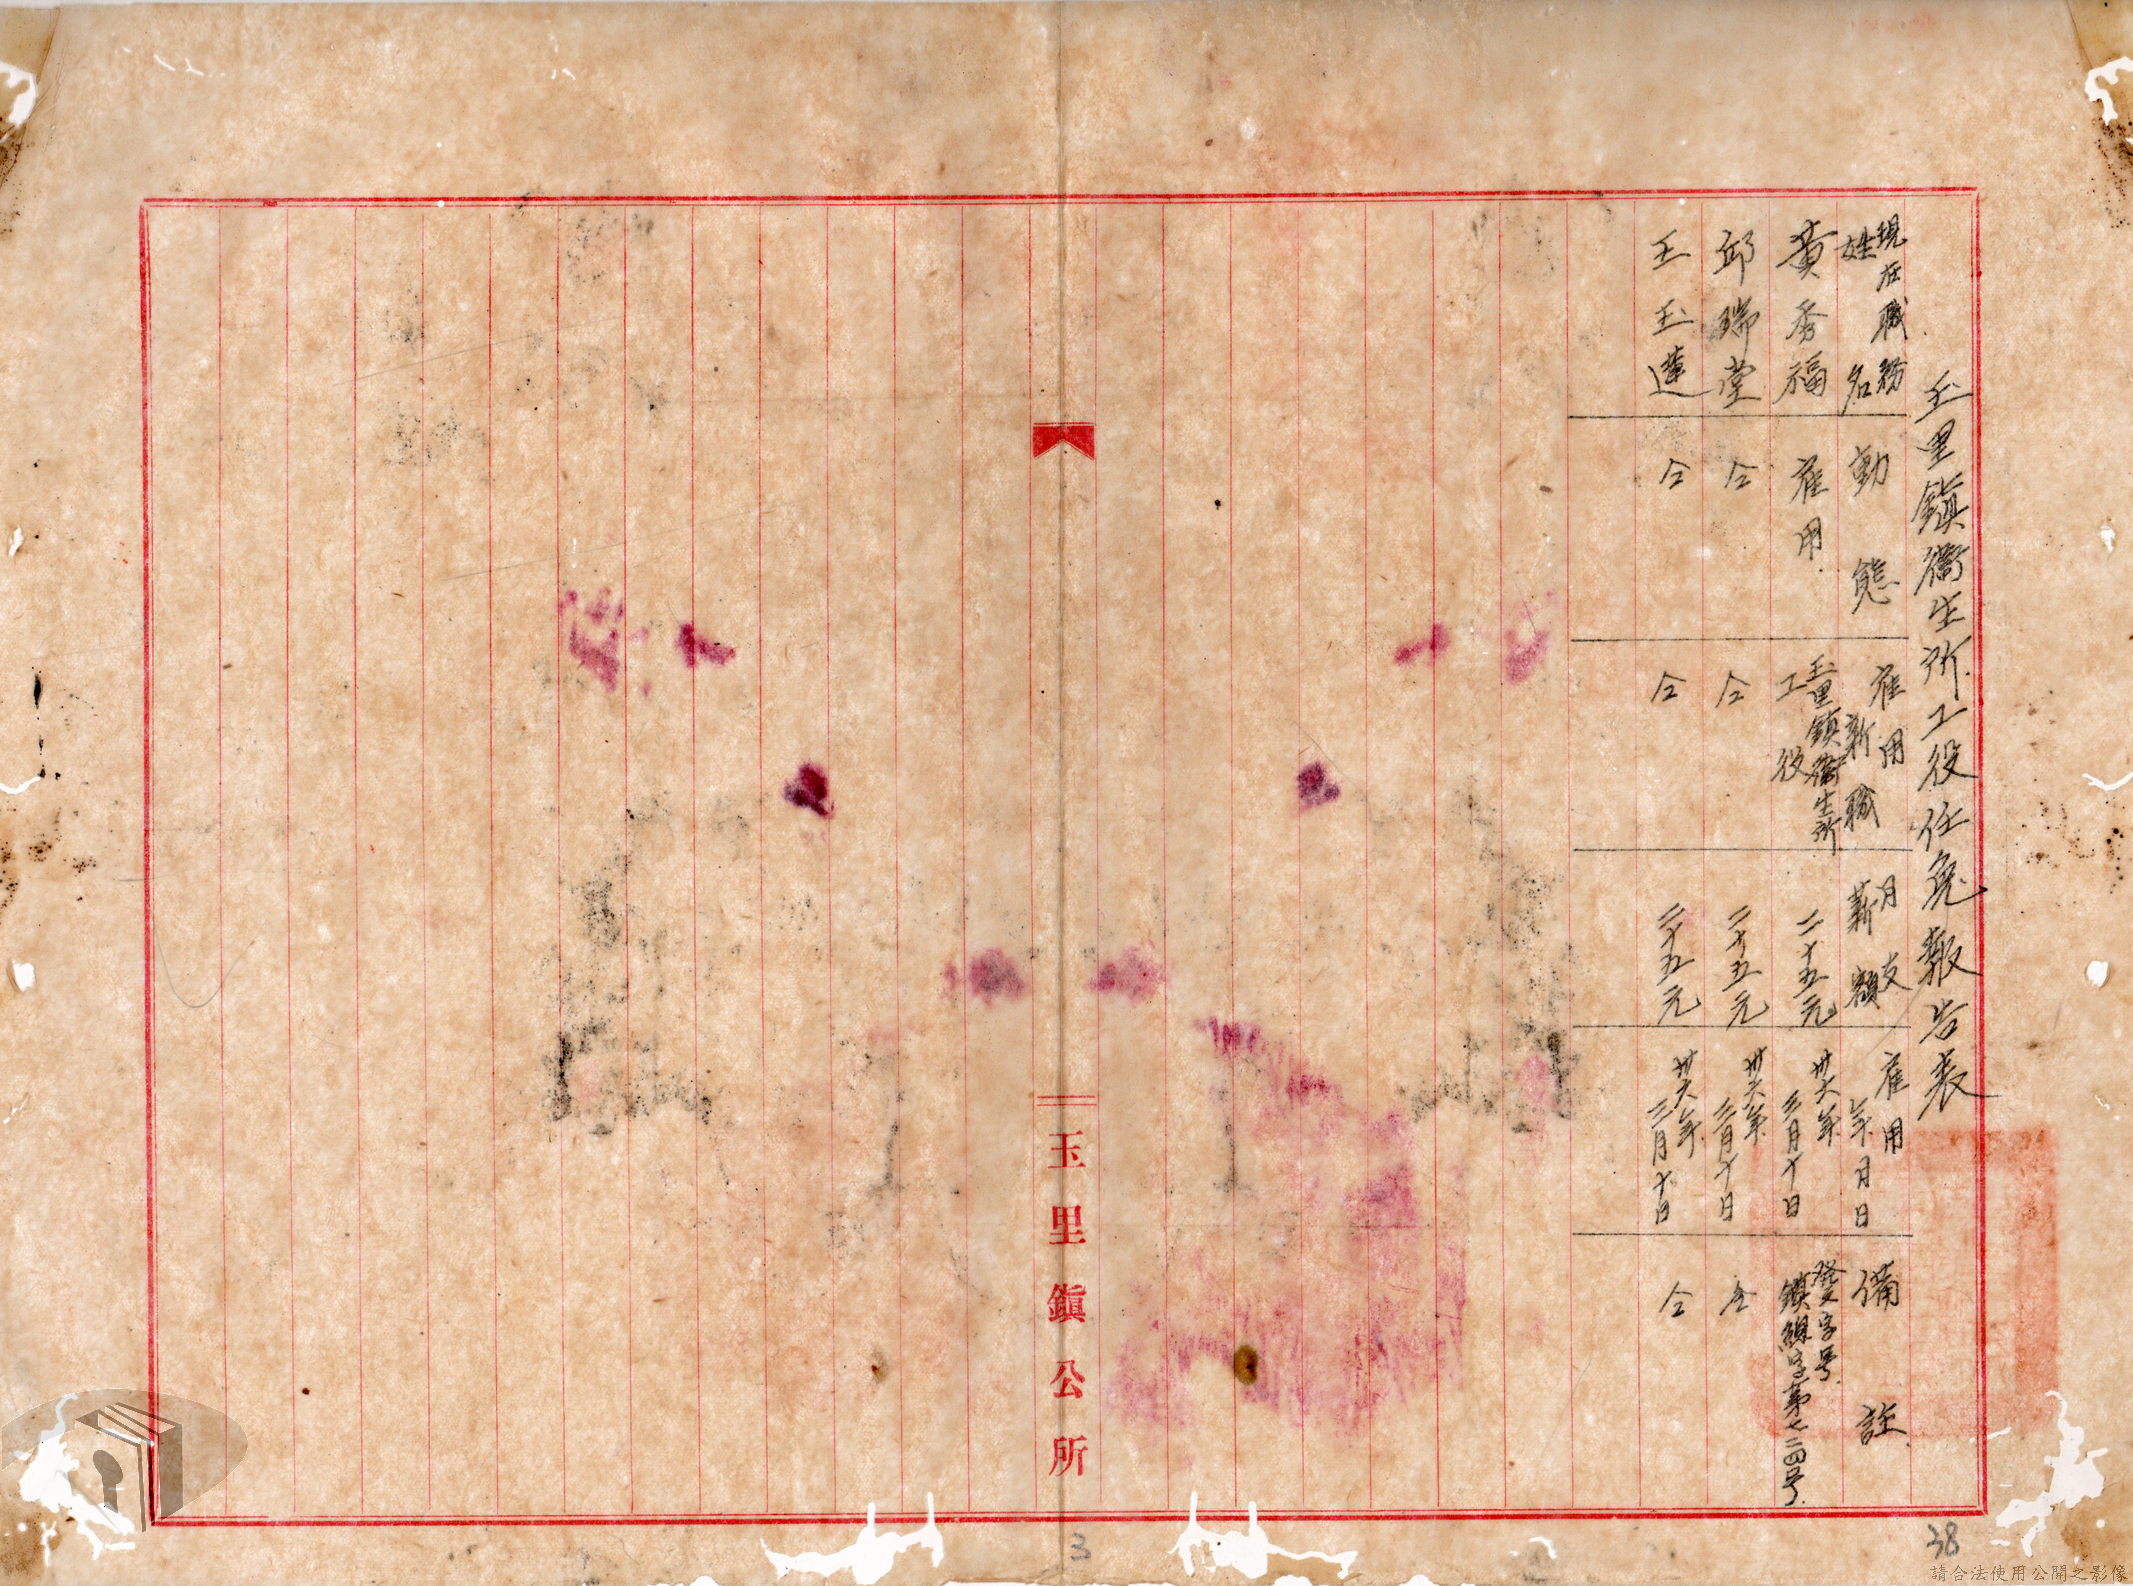 玉里鎮衛生所工役任免報告表
現在職務
姓名
動態
雇用
新職
月支
薪額
雇用
年月日
備註
黃秀福
雇用
玉里鎮衛生所
工役
二十五元
卅六年
三月十日
發文字号
鎮總字第七二四号
邱瑞堂
仝
仝
二十五元
卅六年
三月十日
仝
王玉蓮
仝
仝
二十五元
卅六年
三月十日
仝
玉里鎮公所
3
38
請合法使用公開之影像